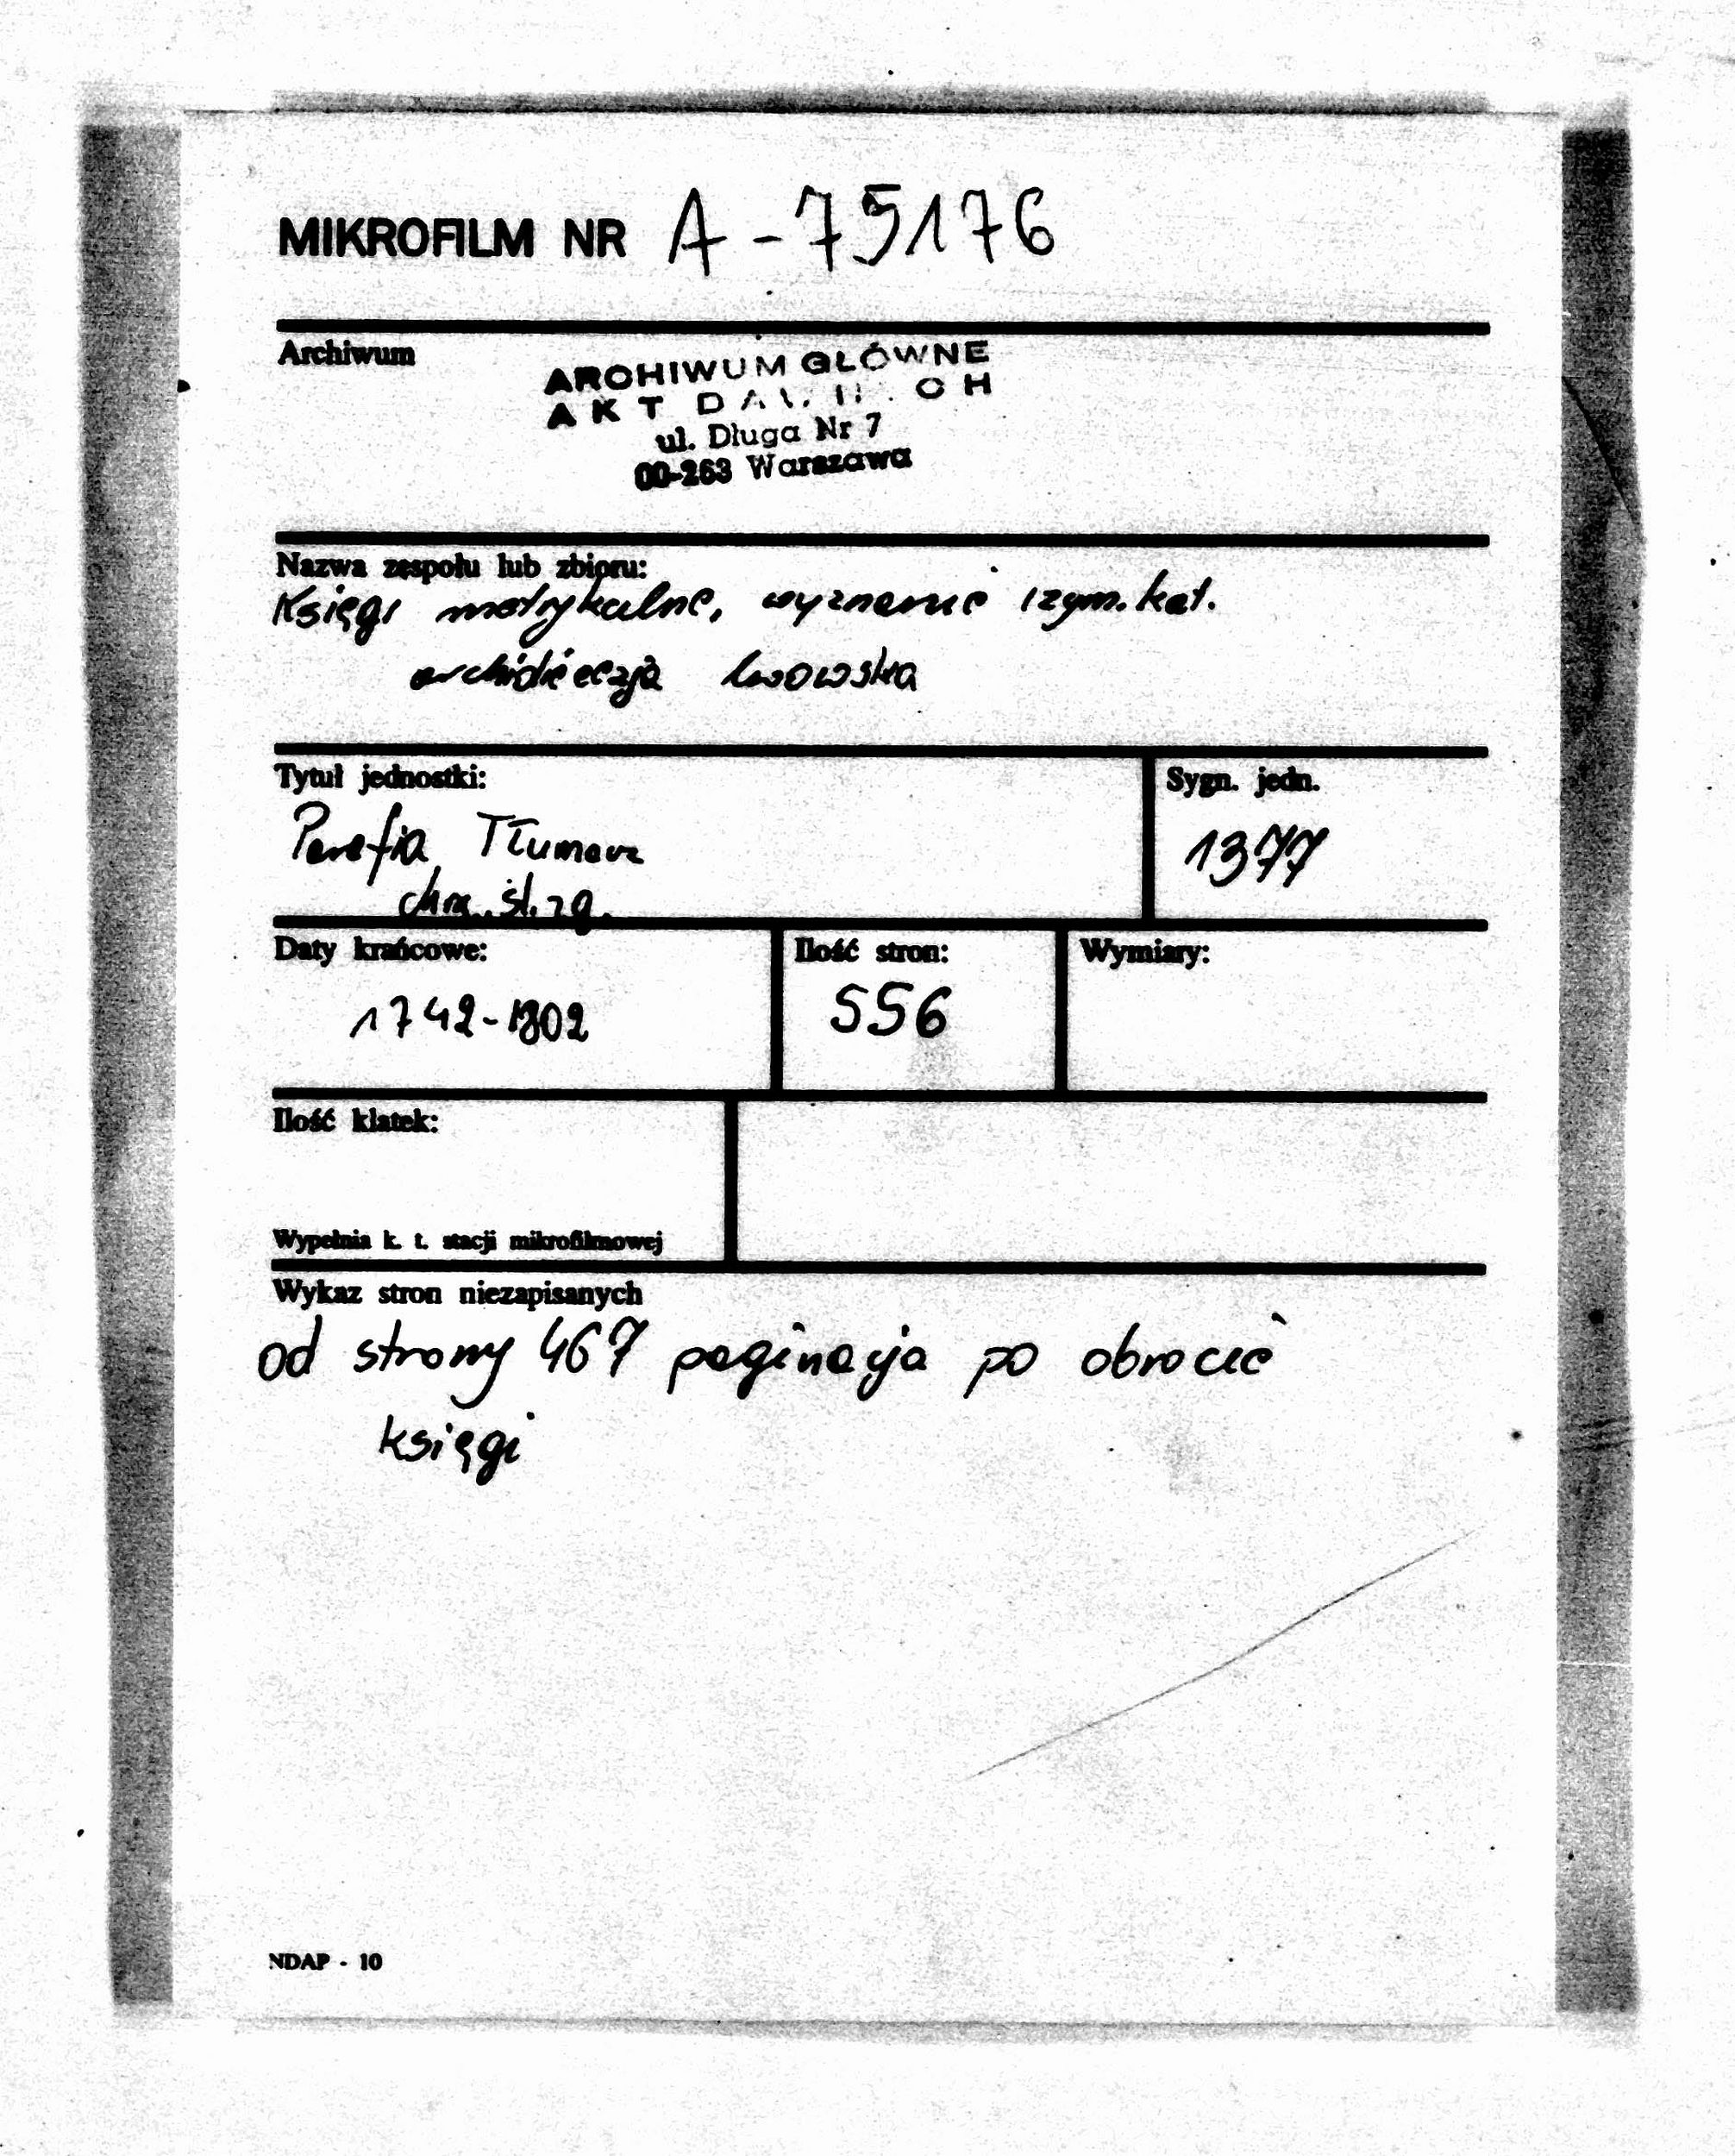 MIKROFILM NR A-75176
Archiwum
ARCHIWUM GŁÓWNE
AKT
ul. Długa Nr 7
00-263 Warszawa
Nazwa zespołu lub zbioru:
Księgi metrykalne, wyznanie rzym.kat.
archidiecezja lwowska
Tytuł jednostki:
Sygn. jedn.
Parafia Tłumacz
1377
chrz. śl. zg.
Daty krańcowe:
Ilość stron:
Wymiary:
1742-1802
556
Ilość klatek:
Wypełnia k. t. stacji mikrofilmowej
Wykaz stron niezapisanych
od strony 467 paginacja po obrocie
księgi
NDAP - 10